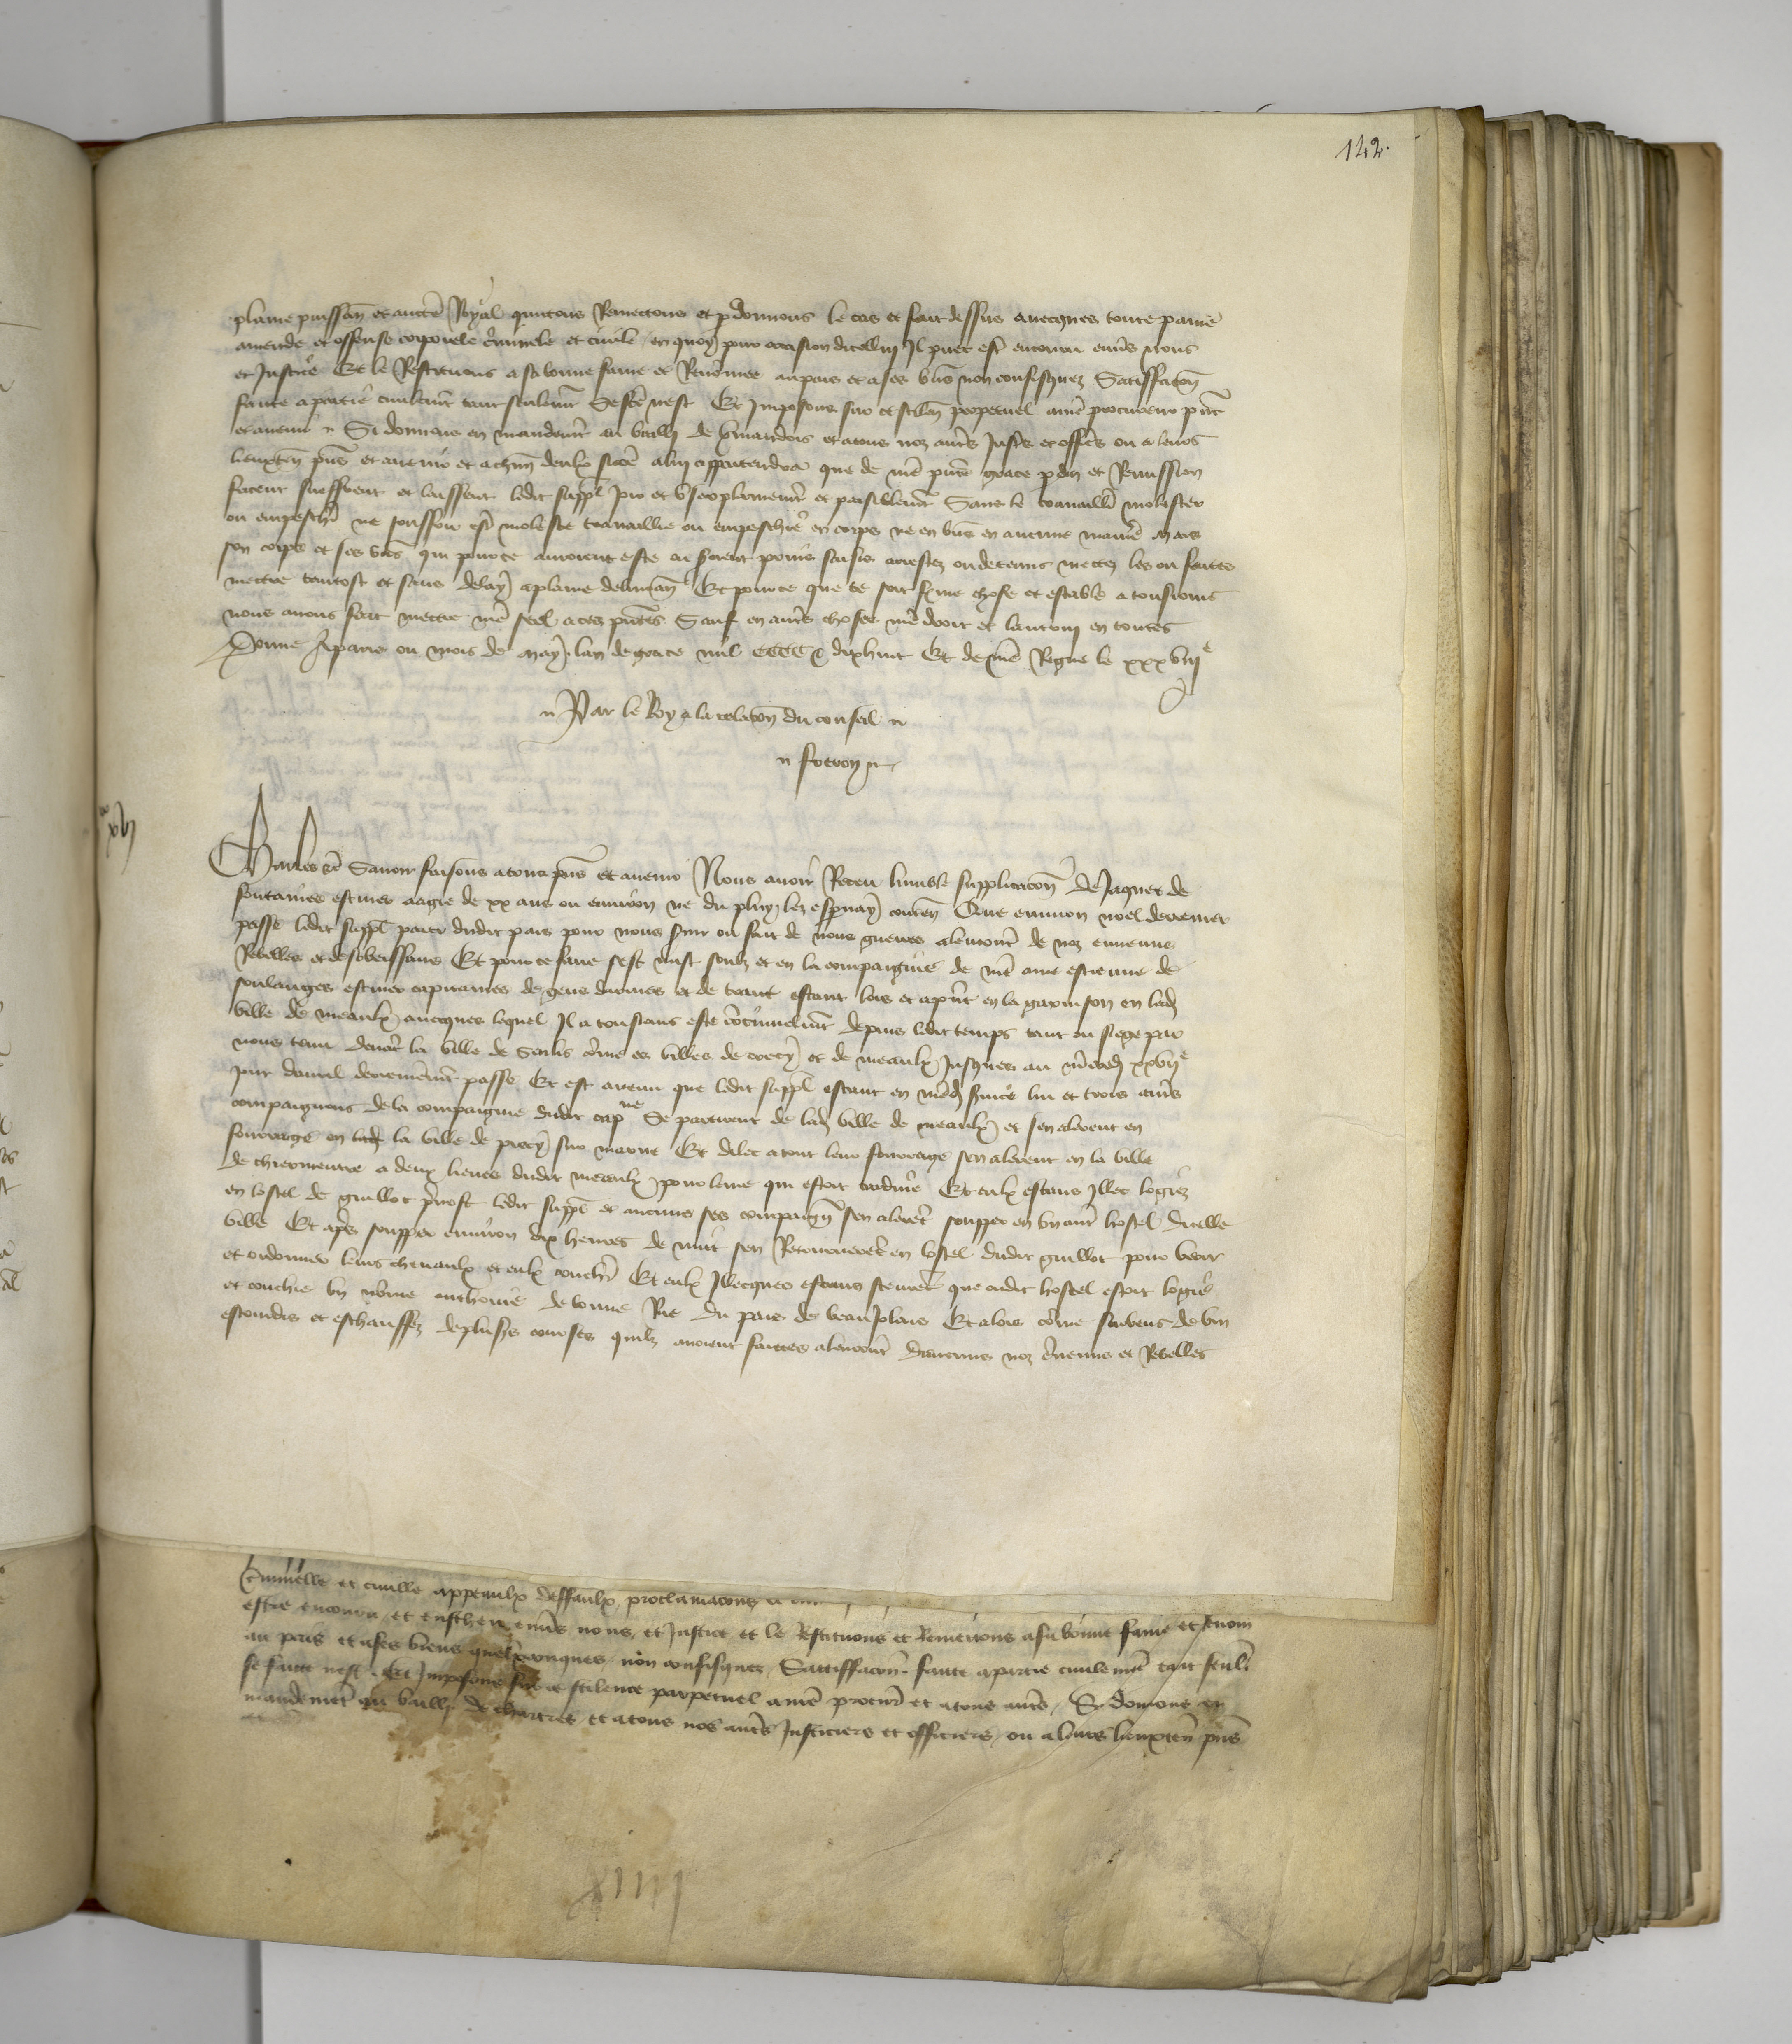 142.
plaine puissan et aucte Royal quictons Remectons et pdonnons le cas et fait dessus auecques toute paine
amende et offense corporele criminele et ciuile en quoy pour occasion dicellui Il puet estre encouru enuers nous
et Justice Et le Restituons a sa bonne fame et Renommee au pais et a ses biens non confisquez Satisfacon
faicte a partie ciuilemt tant seulemt se fcte nest Et Imposons sur ce silence perpetuel a nre procureur pnt
et auenir Si donnons en mandemt au bailli de vermandois et a tous noz autres Justic et offic ou a leurs
lieuxten pns et auenir et a chun deulx sicome a lui appartendra que de nre pnte grace pdon et Remission
facent sueffrent et laissent ledit suppl joir et user plainement et paisiblement Sans le trauaillier molester
ou empeschier ne souffrir estre moleste trauaillie ou empeschie en corps ne en biens en aucune maniere Mais
son corps et ses biens qui pour ce auroient este ou seroient prins saisis arrestez ou detenus mectez les ou faites
mectre tantost et sans delay a plaine deliuran Et pour ce que ce soit ferme chose et estable a tousiours
nous auons fait mectre nre seel a ces pntes Sauf en autres choses nre droit et lautrui en toutes
Donne A paris ou mois de May lan de grace mil cccc & dixhuit Et de nre Regne le xxxviije
Par le Roy a la relacon du conseil
foeron
xvj
Charles etc Sauoir faisons a tous pns et auenir Nous auoir Receu lumble supplicacon de Jaquet de
fontaines escuier aagie de xx ans ou enuiron ne du plessy lez espernay conten Que enuiron noel derrenier
passe ledit suppl parti dudit pais pour nous seruir ou fait de nous guerres alencontre de noz ennemis
Rebelles et desobeissans Et pour ce faire sest mist soubz et en la compaignie de nre ame estienne de
soulanges escuier capitaines de gens darmes et de trait estant lors et a pnt en la garnison en lad
ville de meaulx auecques lequel Il a tousiours este continuelmt depuis ledit temps tant ou siege par
nous tenu deuant la ville de Senlis come es villes de crecy et de meaulx Jusques au mcredi xxvije
jour dauril derrenierement passe Et est auenu que ledit suppl estant en nred seruice lui et trois autres
compaignons de la compaignie dudit cap ne se partirent de lad ville de meaulx et sen alerent en
fourrage en lad la ville de precy sur marne Et dilec a tout leur fourrage sen alerent en la ville
de chiermentre a deux lieues dudit meaulx pour leure qui estoit tardiue Et eulx estans Illec logiez
en lostel de guillot preuost ledit suppl et aucuns ses compaign sen alerent soupper en un autre hostel dicelle
ville Et apres soupper enuiron dix heures de nuit sen Retournerent en lostel dudit guillot pour veoir
et ordonner leurs cheuaulx et eulx couchier Et eulx Illecques estans sceurent que oudit hostel estoit logie
et couchie un nomme anthoine de bonne Rue du pais de beauuoisis Et alors come seurvens de vin
estourdis et eschauffez de pluss courses quilz auoient faictes alencontre daucuns noz ennemis et Rebelles
Criminelle et ciuille appeaulx deffaulx proclamacons
estre encouru et enscheu enuers nous et Justice et le Restituons et Remectons a sa bonne fame et Renom
au pais et a ses biens quelxconques non confisquez Sattiffacon faicte a partie ciuilemt tant seulemt
se faicte nest Et Imposons sur ce silence perpetuel a nre procur et a tous autres Sy donnons en
mandement au bailly de chartres et a tous nos autres Justiciers et officiers ou a leurs lieuxten pns
xiiij